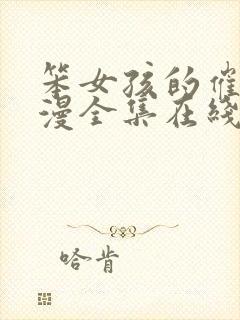 笨女孩的催
漫全集在线
哈肯